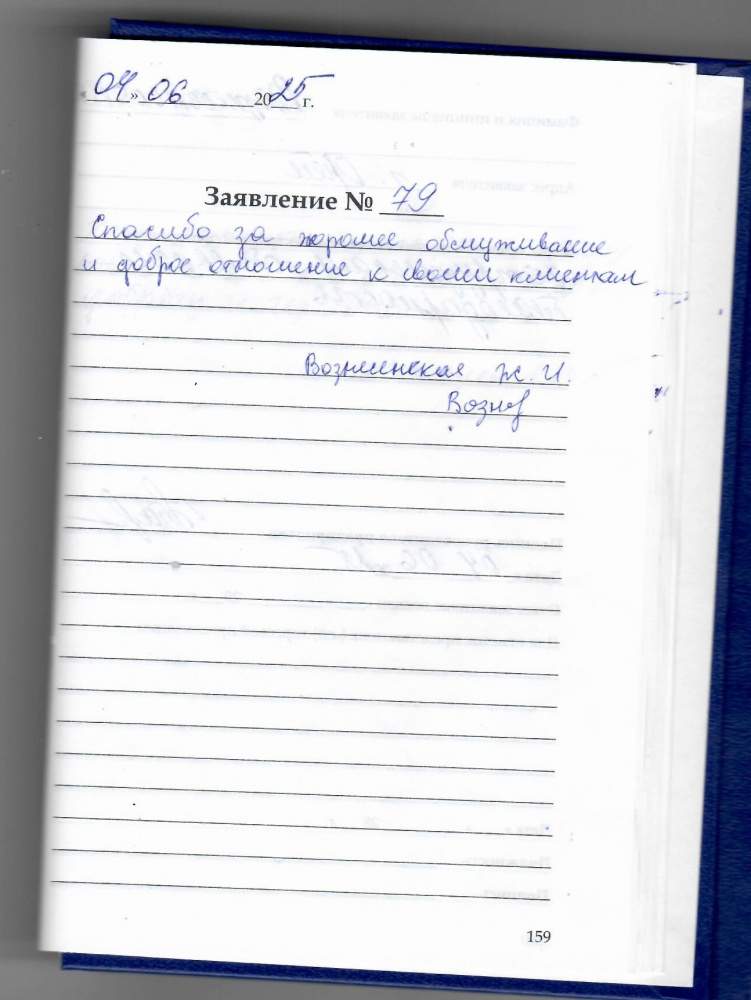 04 » 06 2025 г.
Заявление № 79
Спасибо за хорошее обслуживание
и доброе отношение к своим клиентам
Ж. И.
159